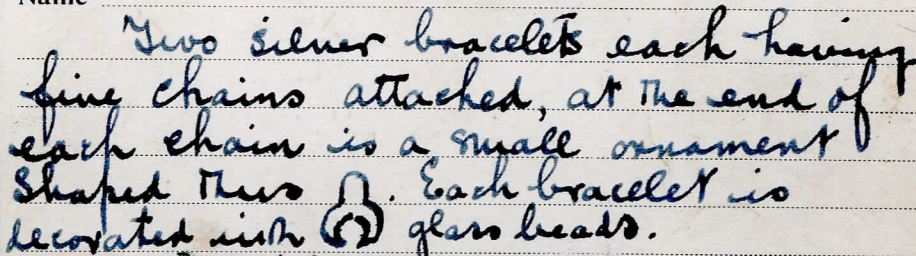 Name
Two silver bracelets each having
five chains attached, at the end of
each chain is a small ornament
shaped thus . Each bracelet is
decorated with glass beads.